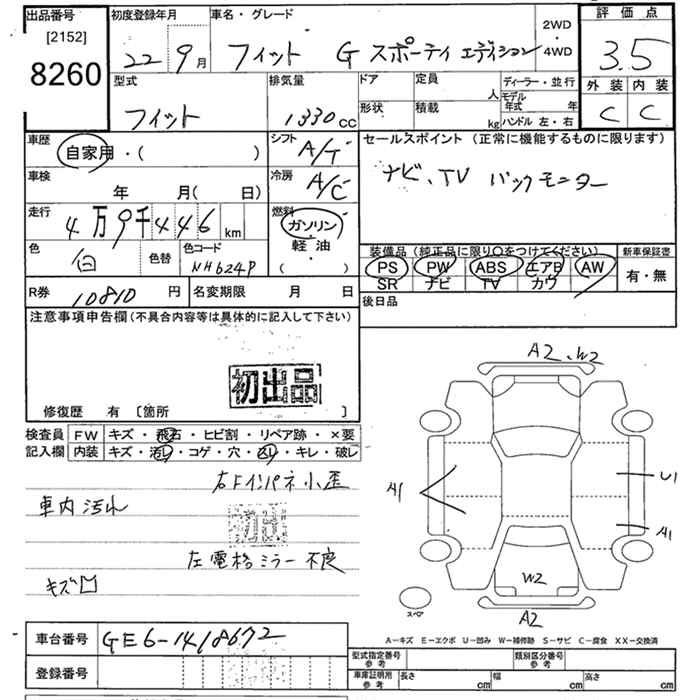 出品番号
[2152]
8260
初度登録年月
22 9月
車名・グレード
フィット G スポーティ エディション
2WD
・
4WD
評価点
3.5
外装 内装
C C
型式
フィット
排気量
1330cc
ドア
定員
人
形状
積載
kg
ディーラー・並行
モデル年式 年
ハンドル 左・右
車歴
自家用・( )
シフト
A/T
セールスポイント (正常に機能するものに限ります)
ナビ、TV バックモニター
車検
年 月( 日)
冷房
A/C
走行
4万9千446km
燃料
ガソリン
軽・油
( )
色
白
色替
色コード
NH624P
装備品(純正品に限り○をつけてください)
PS PW ABS エアB AW
SR ナビ TV カワ
新車保証書
有・無
R券
10810円
名変期限 月 日
後日品
注意事項申告欄(不具合内容等は具体的に記入して下さい)
初出品
修復歴 有 [箇所 ]
検査員
記入欄
FW キズ・飛石・ヒビ割・リペア跡・×要
内装 キズ・汚レ・コゲ・穴・スレ・キレ・破レ
右Fインパネ小歪
車内汚れ
初出
左電格ミラー不良
キズ凹
A2、W2
A1
U1
A1
W2
A2
スペア
車台番号
GE6-1418672
登録番号
A−キズ E−エクボ U−凹み W−補修跡 S−サビ C−腐食 XX−交換済
型式指定番号
参考
類別区分番号
参考
車庫証明用
参考
長さ cm
幅 cm
高さ cm